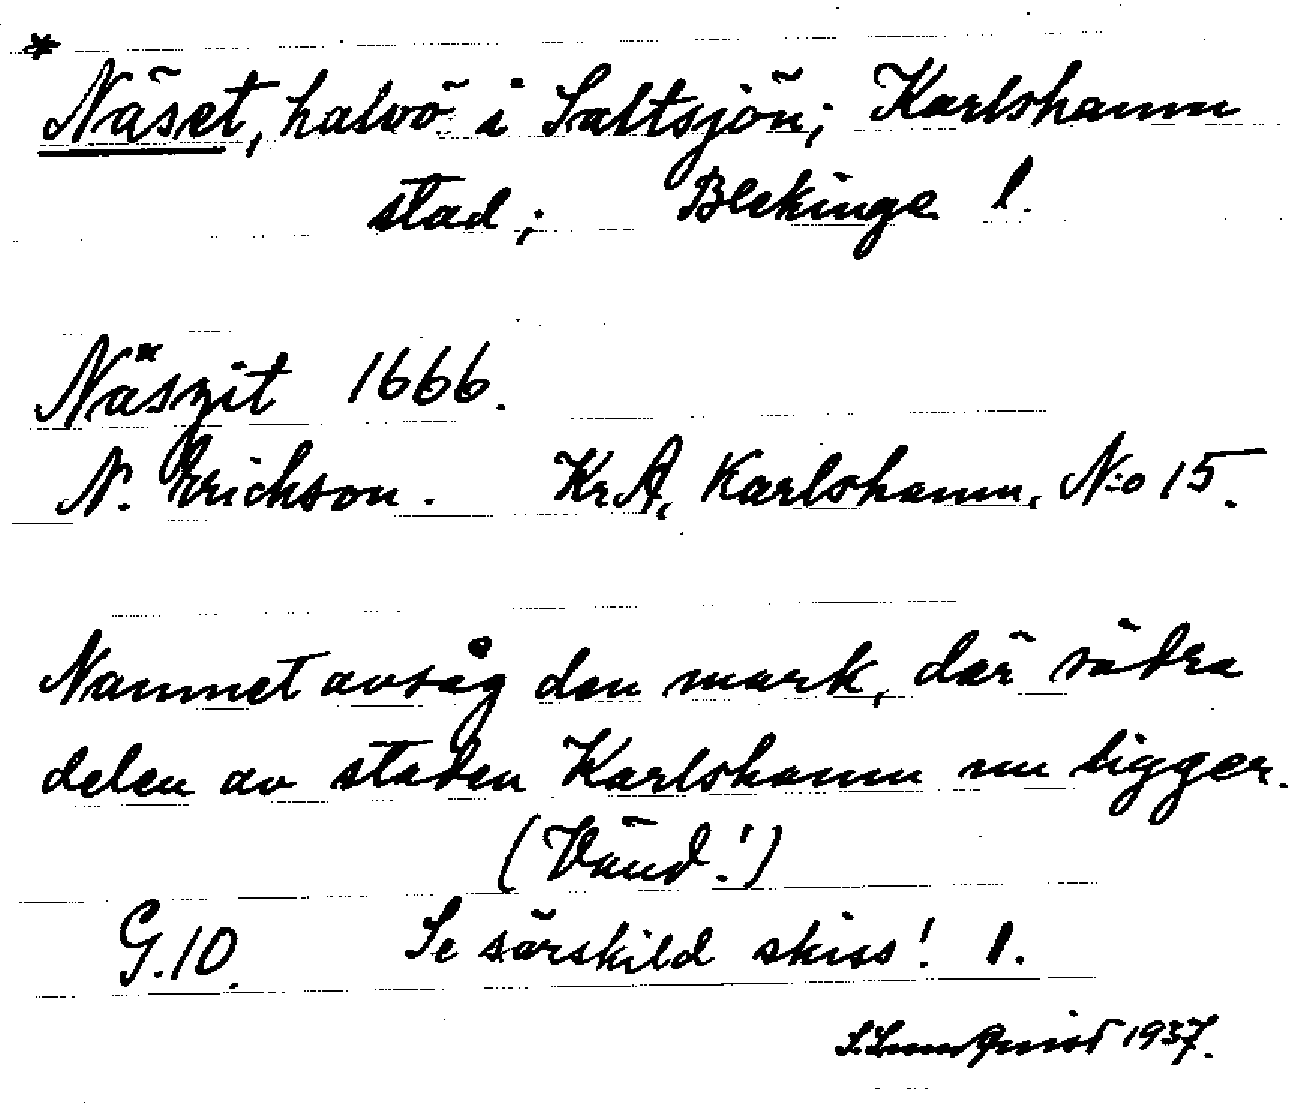 *
Näset, halvö i Saltsjön; Karlshamn
stad; Blekinge l.
Näszit 1666.
N. Erickson. Kr.A, Karlshamn, N:o 15.
Namnet avsåg den mark, där södra
delen av staden Karlshamn nu ligger.
(Vänd!)
G.10. Se särskild skiss! 1.
S. Lundquist 1937.